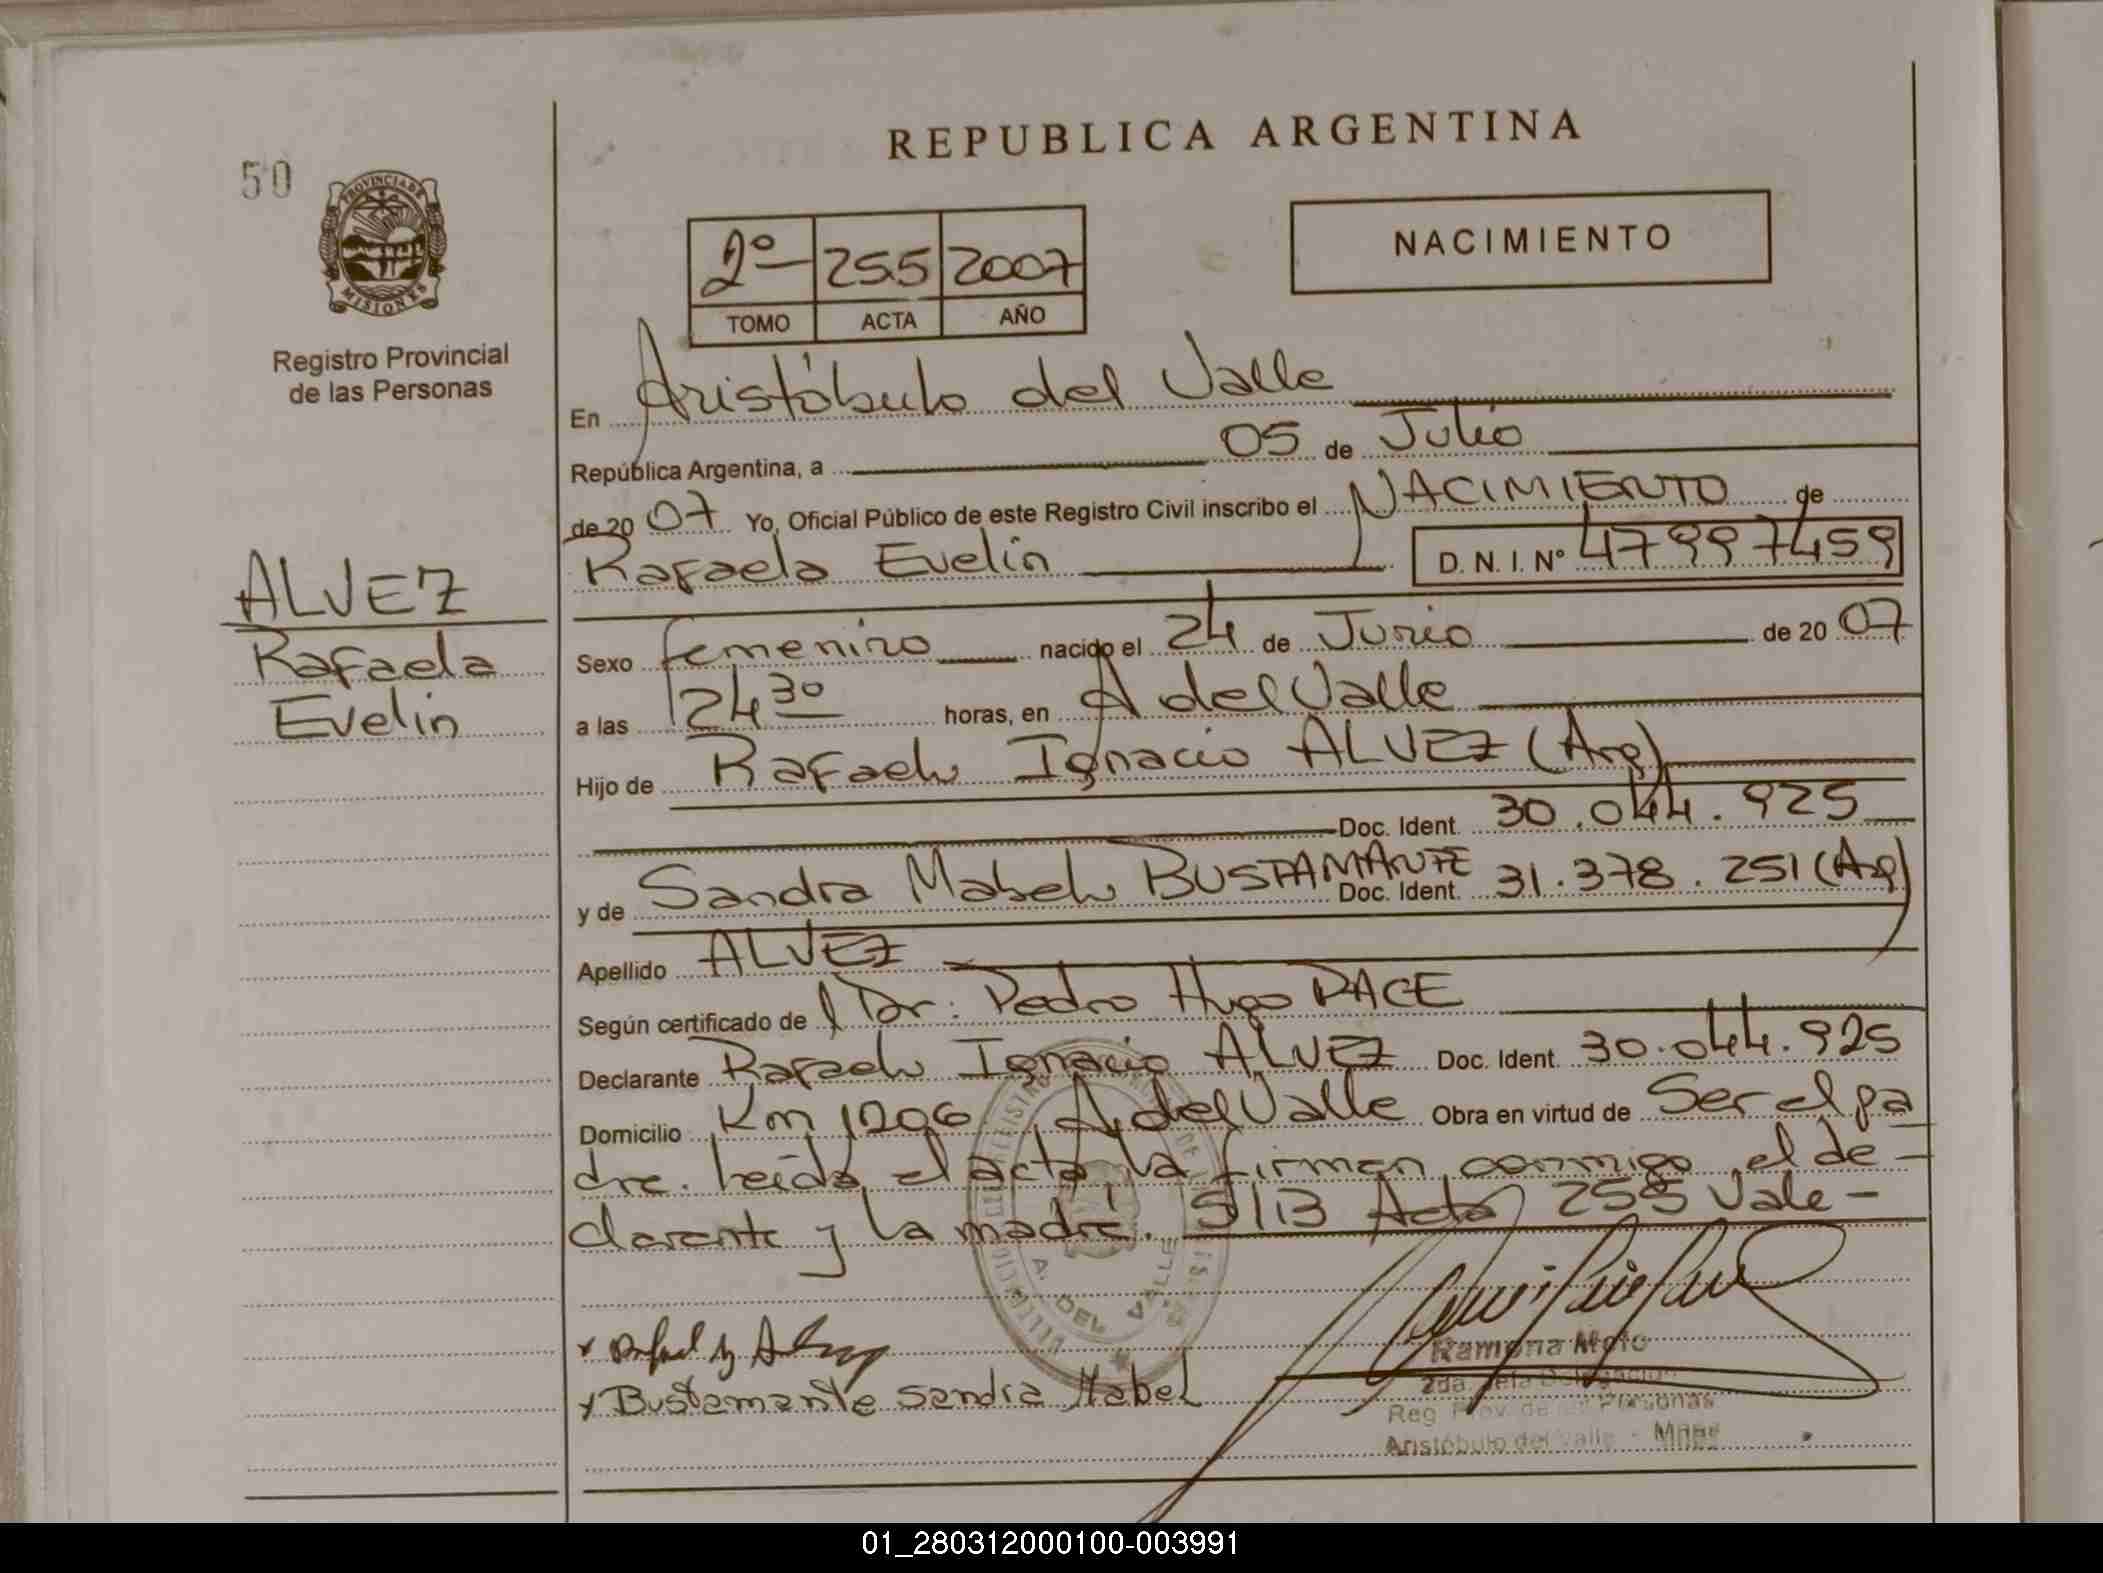 REPUBLICA ARGENTINA
50
PROVINCIA DE
MISIONES
Registro Provincial
de las Personas
2º 255 2007
TOMO ACTA AÑO
NACIMIENTO
En Aristóbulo del Valle
República Argentina, a 05 de Julio
de 2007 Yo, Oficial Público de este Registro Civil inscribo el NACIMIENTO de
Rafaela Evelin D. N. I. Nº 47997459
ALVEZ
Rafaela
Evelin
Sexo femenino nacido el 24 de Junio de 2007
a las 24 30 horas, en A del Valle
Hijo de Rafael Ignacio ALVEZ (Arg)
Doc. Ident. 30.044.925
y de Sandra Mabel BUSTAMANTE Doc. Ident. 31.378.251 (Arg)
Apellido ALVEZ
Según certificado de Dr. Pedro Hugo PACE
Declarante Rafael Ignacio ALVEZ Doc. Ident. 30.044.925
Domicilio Km 1206 A. del Valle Obra en virtud de Ser el pa
dre. Leída el acta, la firman conmigo el de-
clarante y la madre. S/B Acta 255 Vale-
A. DEL VALLE
Bustamante Sandra Mabel
Ramona
2da. Delegación
Reg. Prov. de las Personas
Aristóbulo del Valle - Mnes
01_280312000100-003991